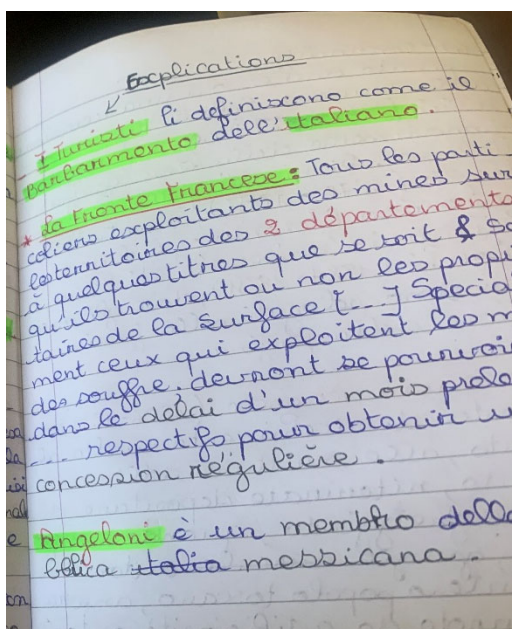 Explications
- I Puristi li definiscono come il
Barbarmento dell'italiano.
* La Fronte Francese : Tous les parti-
culiers exploitants des mines sur
les territoires des 2 départements
à quelques titres que se soit & so
qu'ils trouvent ou non les propri
taires de la surface [...] Special
ment ceux qui exploitent les m
des souffre. devront se pourvoir
dans le délai d'un mois
.... respectifs pour obtenir u
concession régulière.
Angeloni è un membro dell
bblica italia messicana.